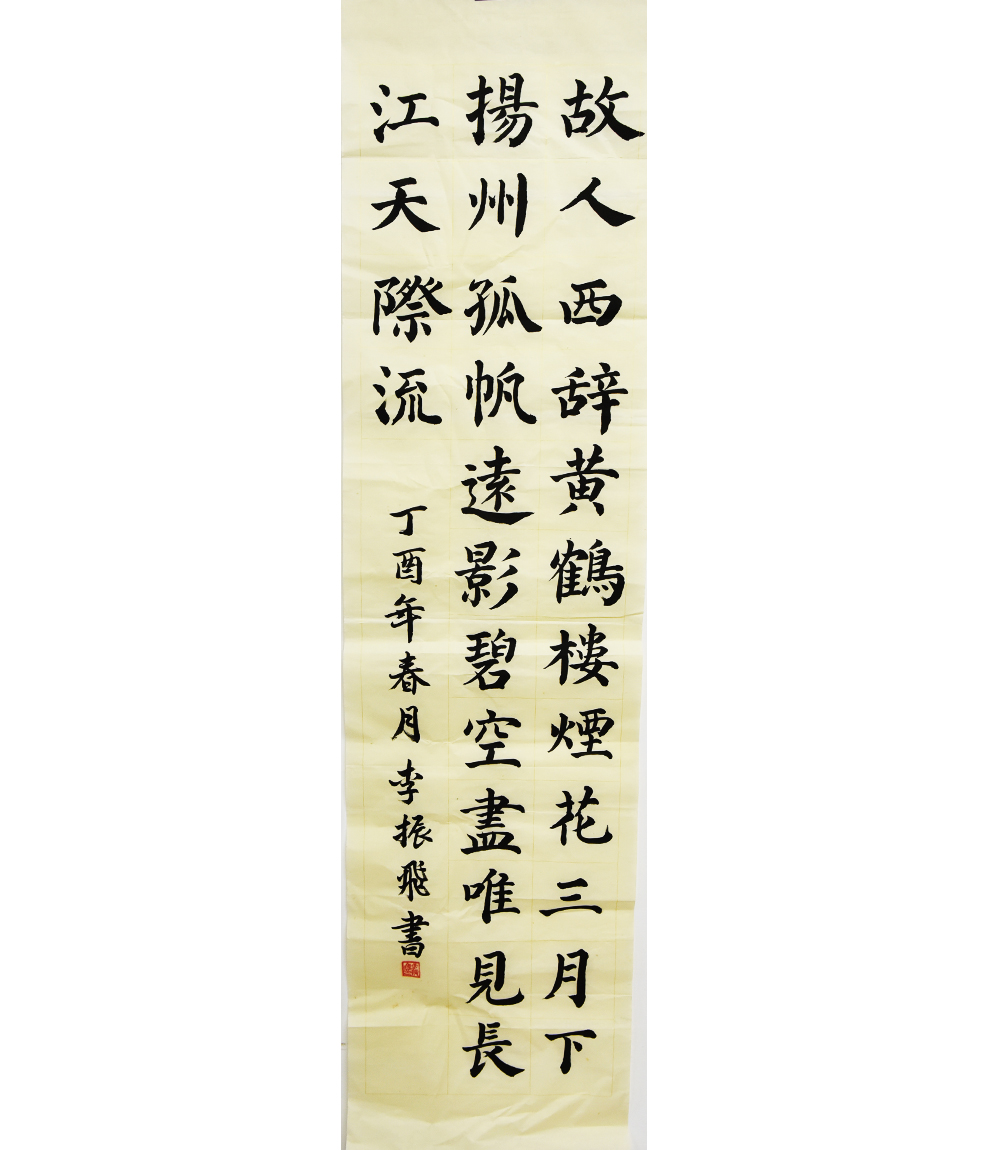 故人西辞黄鶴楼煙花三月下
揚州孤帆遠影碧空盡唯見長
江天際流
丁酉年春月李振飛書